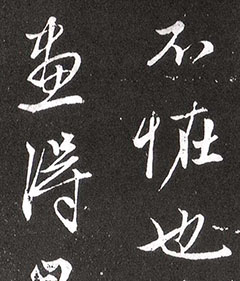 不恠也
畫得